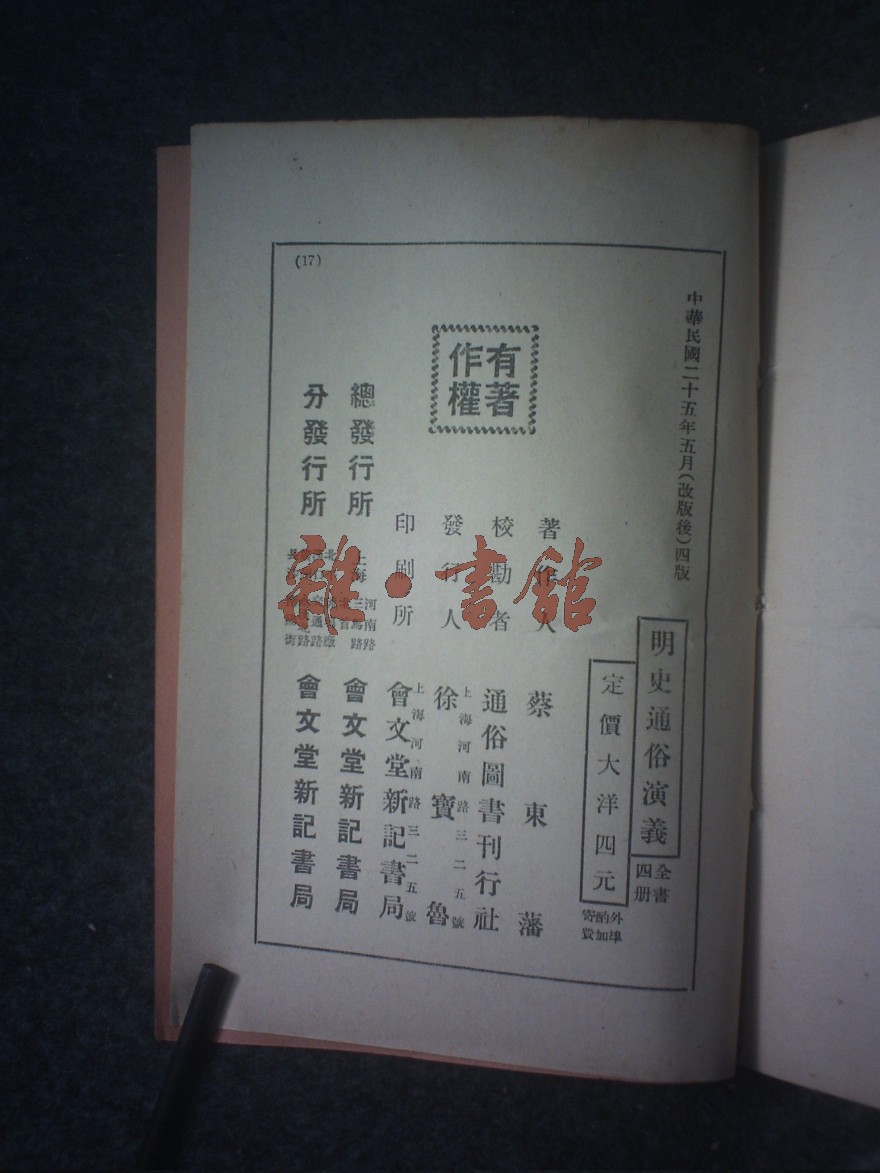 中華民國二十五年五月(改版後)四版
明史通俗演義
全書四册
定價大洋四元
外埠酌加寄費
有著作權
著作人 蔡東藩
校勘者 通俗圖書刊行社
發行人 徐寶魯
上海河南路三二五號
印刷所 會文堂新記書局
上海河南路三二五號
總發行所 上海河南路三馬路 會文堂新記書局
分發行所 會文堂新記書局
(17)
雜·書館